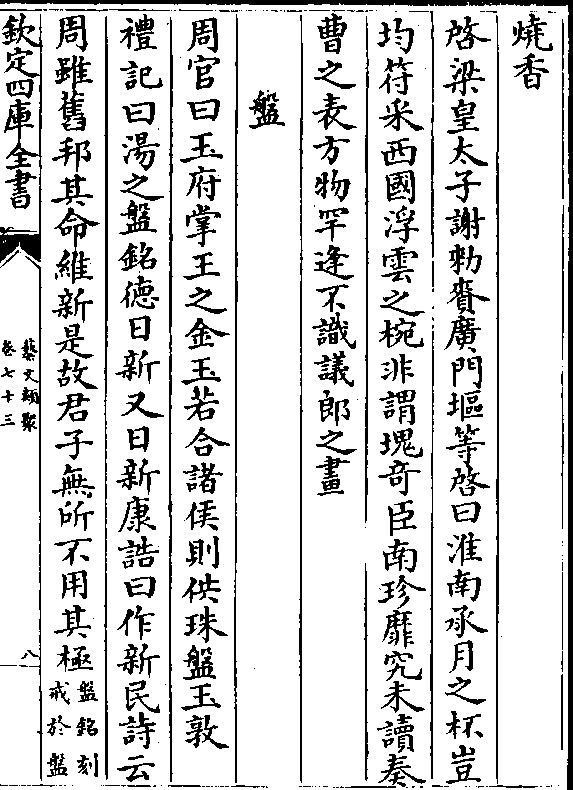 燒香
啓梁皇太子謝勑賚廣門塸等啓曰淮南承月之杯豈
均符采西國浮雲之椀非謂瑰奇臣南珍靡究未讀奏
曹之表方物罕逢不識議郎之畫
盤
周官曰玉府掌王之金玉若合諸侯則供珠盤玉敦
禮記曰湯之盤銘德日新又日新康誥曰作新民詩云
周雖舊邦其命維新是故君子無所不用其極盤銘刻
戒於盤
欽定四庫全書
藝文類聚
卷七十三
八